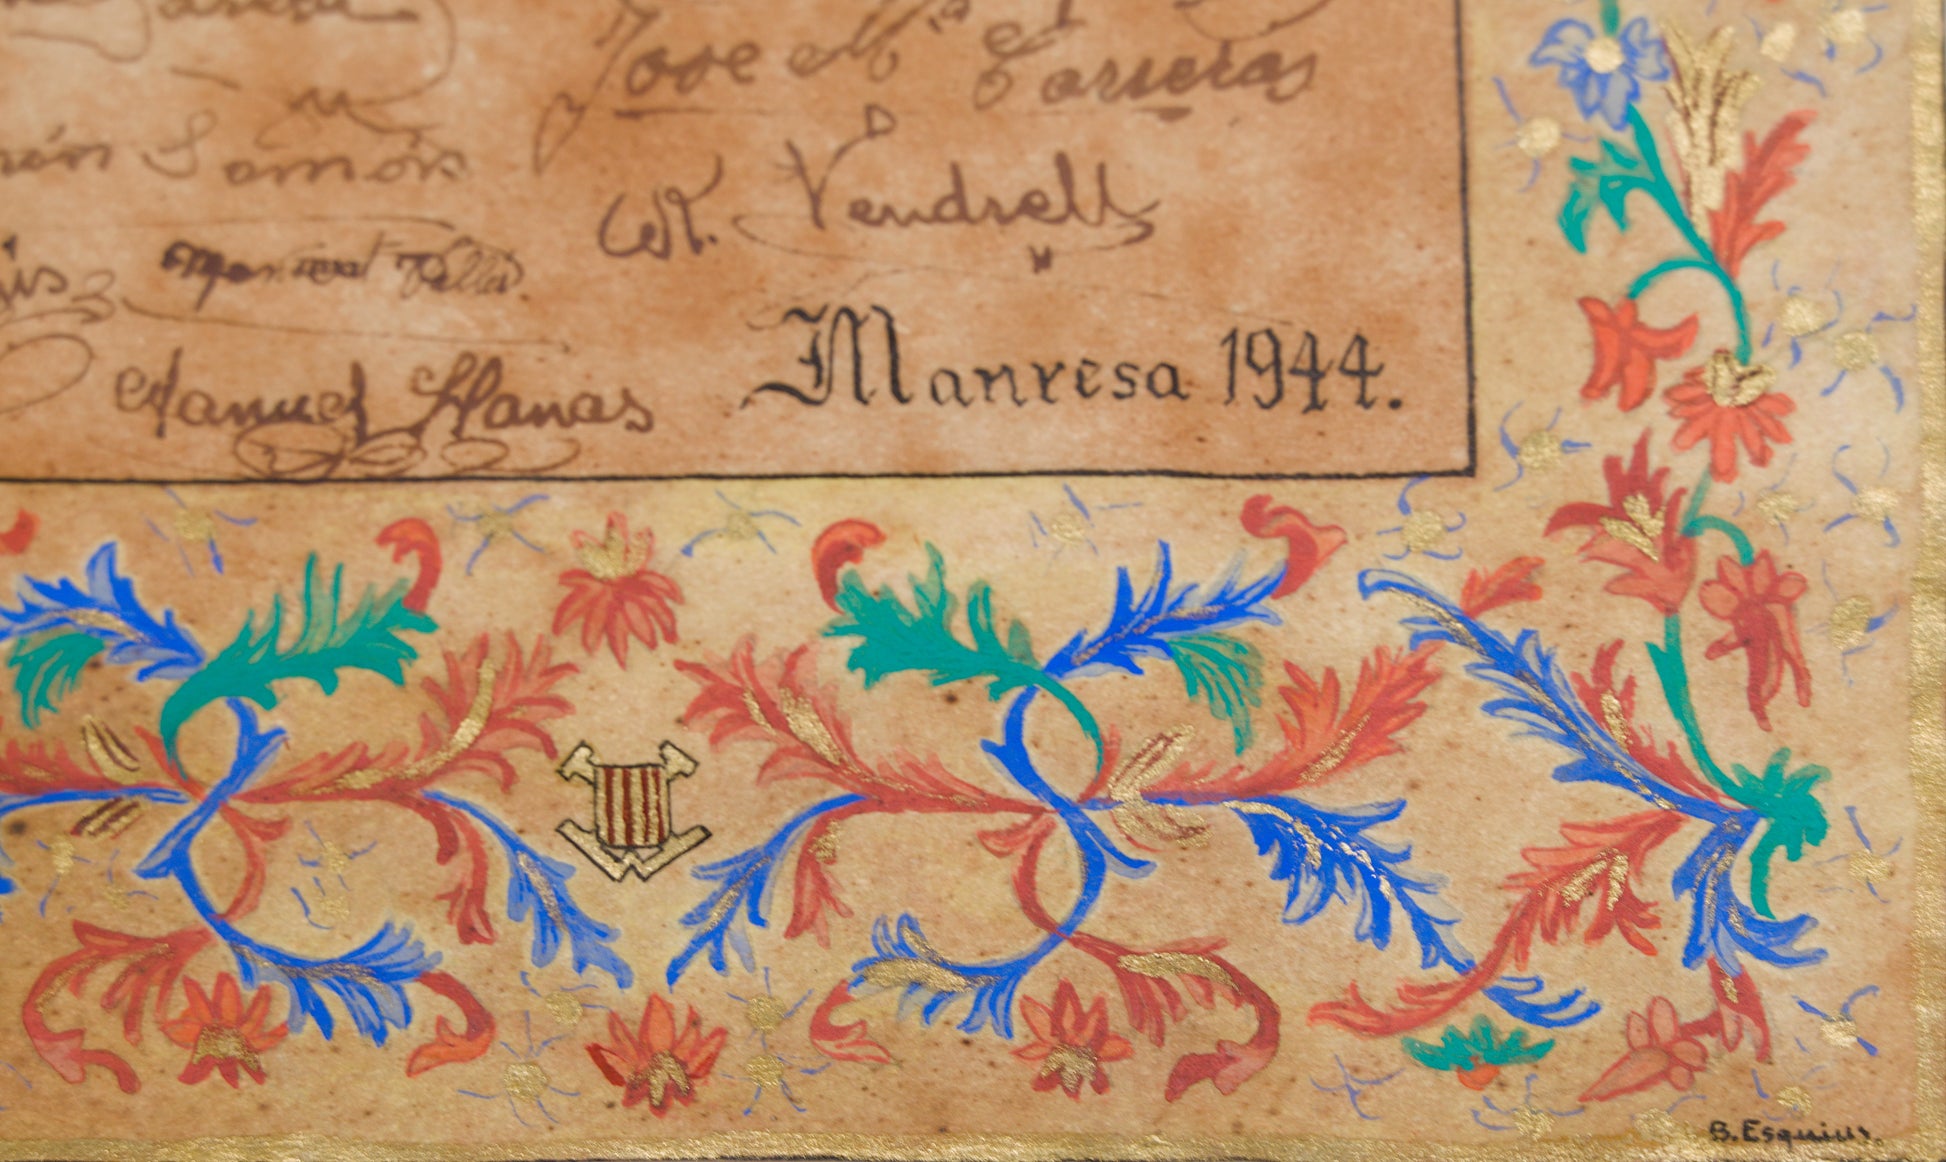 Jose Mª Farreras
Simón
R. Vendrell
Montserrat Vallés
Manuel Llanas
Manresa 1944.
B. Esquius.